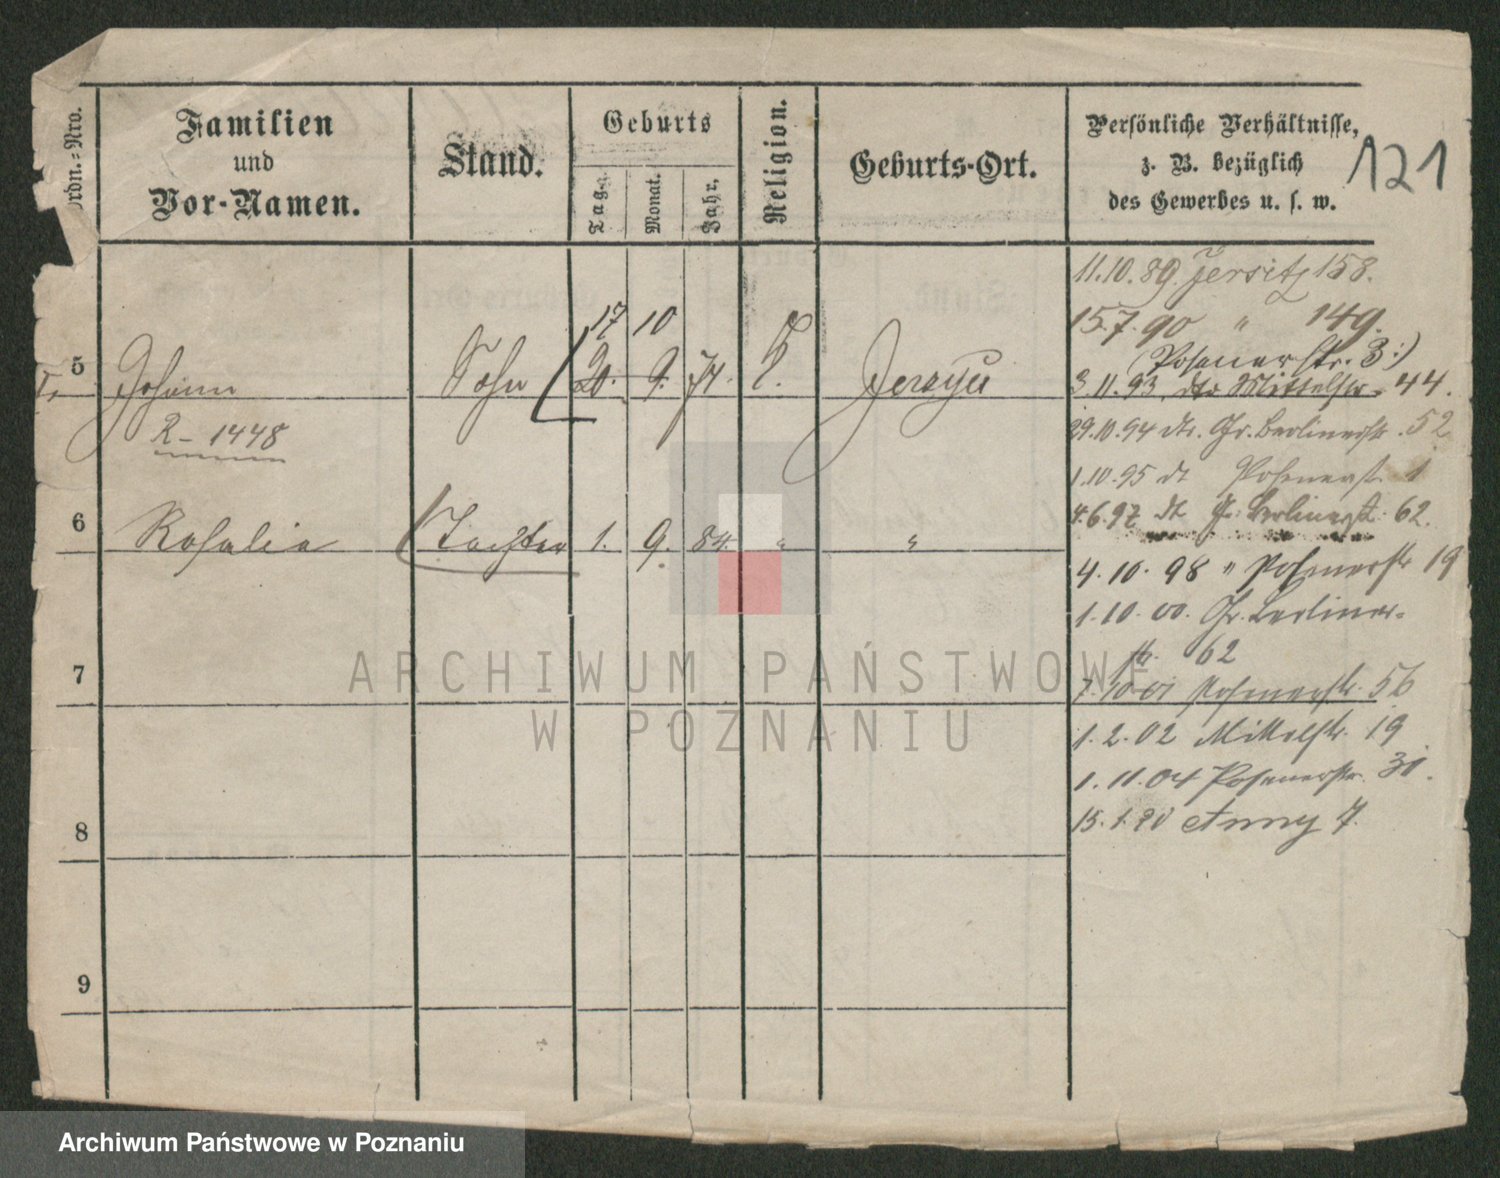 Ordn.=Nro.
Familien
und
Vor-Namen.
Stand.
Geburts
Tag.
Monat.
Jahr.
Religion.
Geburts-Ort.
Persönliche Verhältnisse,
z. B. bezüglich
des Gewerbes u. s. w.
121
5
Johann
Sohn
17 10
20. 9. 74.
k.
Jerzyce
R - 1448
6
Rosalie
Tochter
1. 9. 84.
"
"
7
8
9
11.10.89. Jersitz 158.
15.7.90 " 149.
(Posenerstr. 3:)
3.11.93. dto Mittelstr. 44.
29.10.94 dto. Gr. Berlinerstr. 52
1.10.95 dt Posenerst. 1
4.6.97 dt Gr. Berlinerstr. 62.
4.10.98 " Posenerstr 19
1.10.00. Gr. Berliner-
str. 62
7.10.01 Posenerstr. 56
1.2.02 Mittelstr. 19
1.11.04 Posenerstr. 31.
15.1.20 Anny 7.
ARCHIWUM PAŃSTWOWE
W POZNANIU
Archiwum Państwowe w Poznaniu